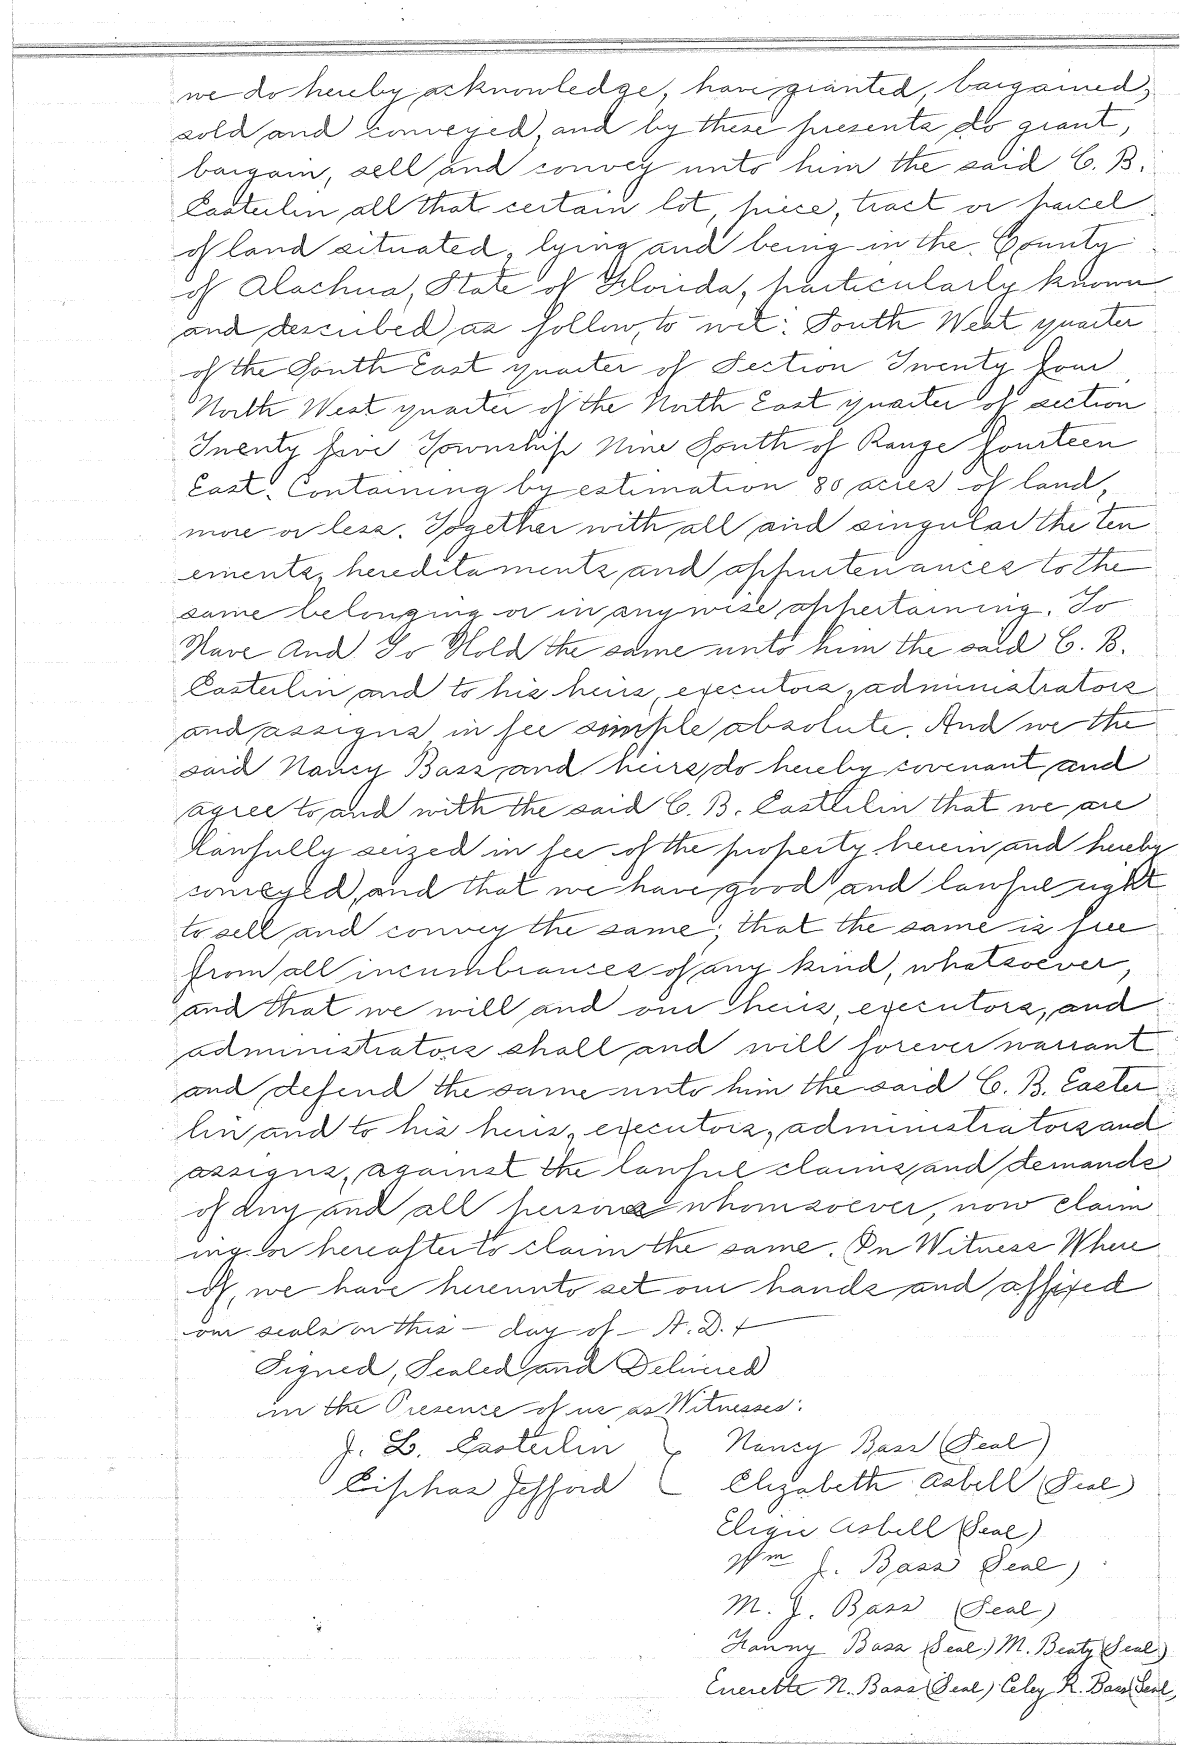 we do hereby acknowledge, have granted, bargained,
sold and conveyed, and by these presents do grant,
bargain, sell and convey unto him the said C. B.
Easterlin all that certain lot, piece, tract or parcel
of land situated, lying and being in the County
of Alachua, State of Florida, particularly known
and described as follow, to wit: South West quarter
of the South East quarter of Section Twenty four
North West quarter of the North East quarter of section
Twenty five Township Nine South of Range fourteen
East. Containing by estimation 80 acres of land,
more or less. Together with all and singular the ten
ements, hereditaments and appurtenances to the
same belonging or in anywise appertaining. To
Have And To Hold the same unto him the said C. B.
Easterlin and to his heirs, executors, administrators
and assigns in fee simple absolute. And we the
said Nancy Bass and heirs do hereby covenant and
agree to and with the said C. B. Easterlin that we are
lawfully seized in fee of the property herein and hereby
conveyed, and that we have good and lawful right
to sell and convey the same; that the same is free
from all incumbrances of any kind, whatsoever,
and that we will and our heirs, executors, and
administrators shall and will forever warrant
and defend the same unto him the said C. B. Easter
lin and to his heirs, executors, administrators and
assigns, against the lawful claims and demands
of any and all persons whomsoever, now claim
ing or hereafter to claim the same. In Witness Where
of, we have hereunto set our hands and affixed
our seals on this — day of — A. D. +
Signed, Sealed and Delivered
in the Presence of us as Witnesses:
J. L. Easterlin } Nancy Bass (Seal)
Ciphas Jefford Elizabeth Asbell (Seal)
Eligie Asbell (Seal)
Wm J. Bass Seal)
M. J. Bass (Seal)
Fanny Bass (Seal) M. Beaty (Seal)
Enerette N. Bass (Seal) Celey R. Bass (Seal,